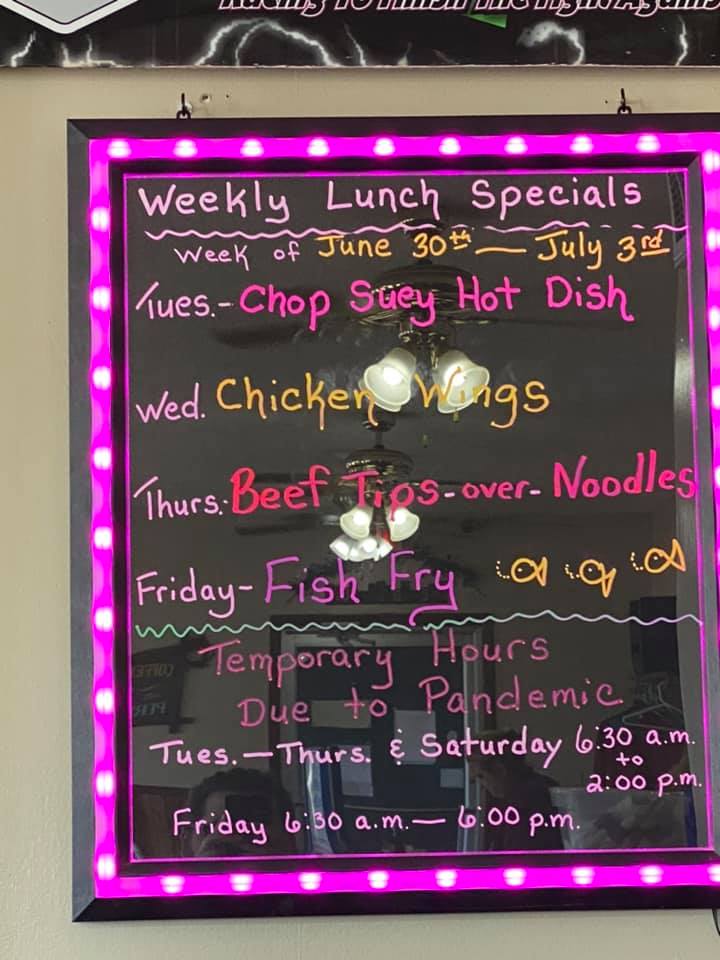 Racing To Finish The Fight Against
Weekly Lunch Specials
Week of June 30th — July 3rd
Tues.- Chop Suey Hot Dish
Wed. Chicken Wings
Thurs. Beef Tips-over-Noodles
Friday- Fish Fry
Temporary Hours
Due to Pandemic
Tues.—Thurs. & Saturday 6:30 a.m.
to
2:00 p.m.
Friday 6:30 a.m.— 6:00 p.m.